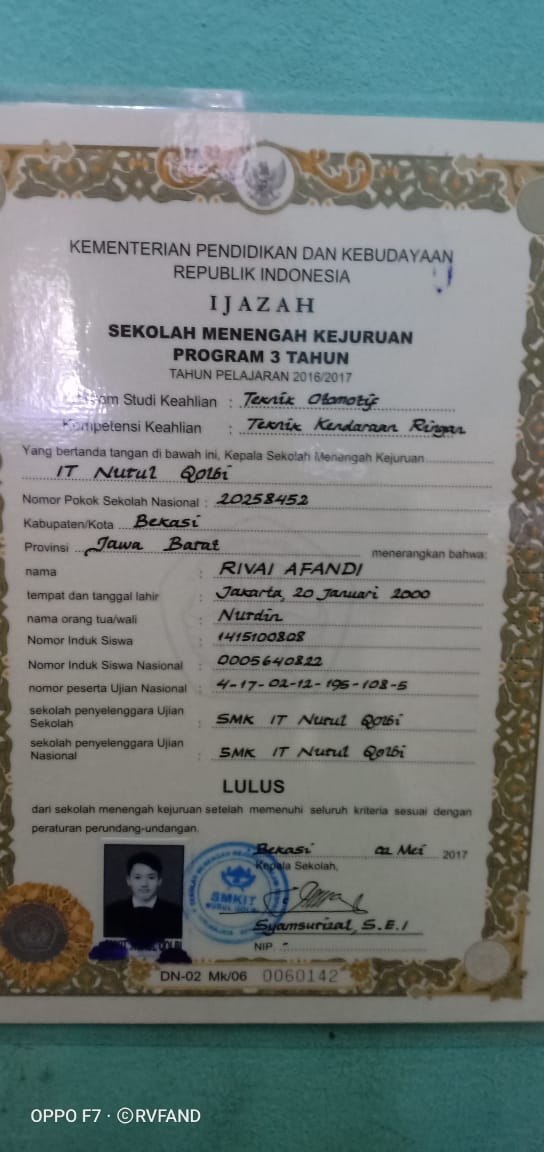 KEMENTERIAN PENDIDIKAN DAN KEBUDAYAAN
REPUBLIK INDONESIA
IJAZAH
SEKOLAH MENENGAH KEJURUAN
PROGRAM 3 TAHUN
TAHUN PELAJARAN 2016/2017
Studi Keahlian : Teknik Otomotif
Kompetensi Keahlian : Teknik Kendaraan Ringan
Yang bertanda tangan di bawah ini, Kepala Sekolah Menengah Kejuruan
IT Nurul Qolbi
Nomor Pokok Sekolah Nasional : 20258452
Kabupaten/Kota Bekasi
Provinsi Jawa Barat menerangkan bahwa:
nama : RIVAI AFANDI
tempat dan tanggal lahir : Jakarta, 20 Januari 2000
nama orang tua/wali : Nurdin
Nomor Induk Siswa : 1415100808
Nomor Induk Siswa Nasional : 0005640822
nomor peserta Ujian Nasional : 4-17-02-12-195-108-5
sekolah penyelenggara Ujian
Sekolah : SMK IT Nurul Qolbi
sekolah penyelenggara Ujian
Nasional : SMK IT Nurul Qolbi
LULUS
dari sekolah menengah kejuruan setelah memenuhi seluruh kriteria sesuai dengan
peraturan perundang-undangan.
Bekasi, 02 Mei 2017
Kepala Sekolah,
SMKIT
NURUL QOLBI
Syamsurizal, S.E.I
NIP. -
DN-02 Mk/06 0060142
OPPO F7 · ©RVFAND